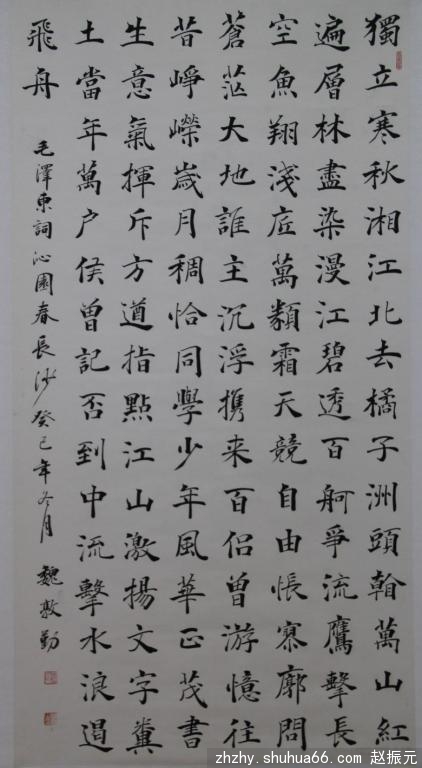 獨立寒秋湘江北去橘子洲頭翰萬山紅
遍層林盡染漫江碧透百舸爭流鷹擊長
空魚翔淺底萬類霜天競自由悵寥廓問
蒼茫大地誰主沉浮携来百侣曾游憶往
昔崢嶸歲月稠恰同學少年風華正茂書
生意氣揮斥方遒指點江山激揚文字糞
土當年萬户侯曾記否到中流擊水浪遏
飛舟
毛澤東詞沁園春長沙癸巳年冬月 魏敦勤
zhzhy.shuhua66.com 赵振元